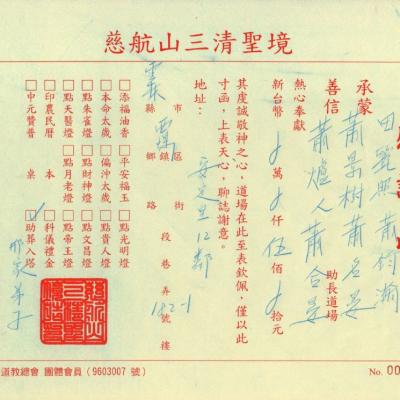 慈航山三清聖境
感謝
承蒙
善信
田 蕭 瀚
蕭景樹 蕭名晏
蕭 人 蕭合晏
助長道場
熱心奉獻
新台幣 萬 仟 伍佰 拾元
其虔誠敬神之心,道場在此至表欽佩,僅以此
寸函,上表天心,聊誌謝意。
地址:
縣市 鄉鎮區 路街 段 巷 弄 號 樓
安定里12鄰 182-1
□添福油香 □平安福玉 □點光明燈
□本命太歲 □偏沖太歲 □點貴人燈
□點朱雀燈 □點財神燈 □點文昌燈
□點天醫燈 □點月老燈 □點帝王燈
□印農民曆 本 □科儀禮金
□中元贊普 桌 □助葬入塔
弟子
道教總會 團體會員(9603007 號)
No. 00